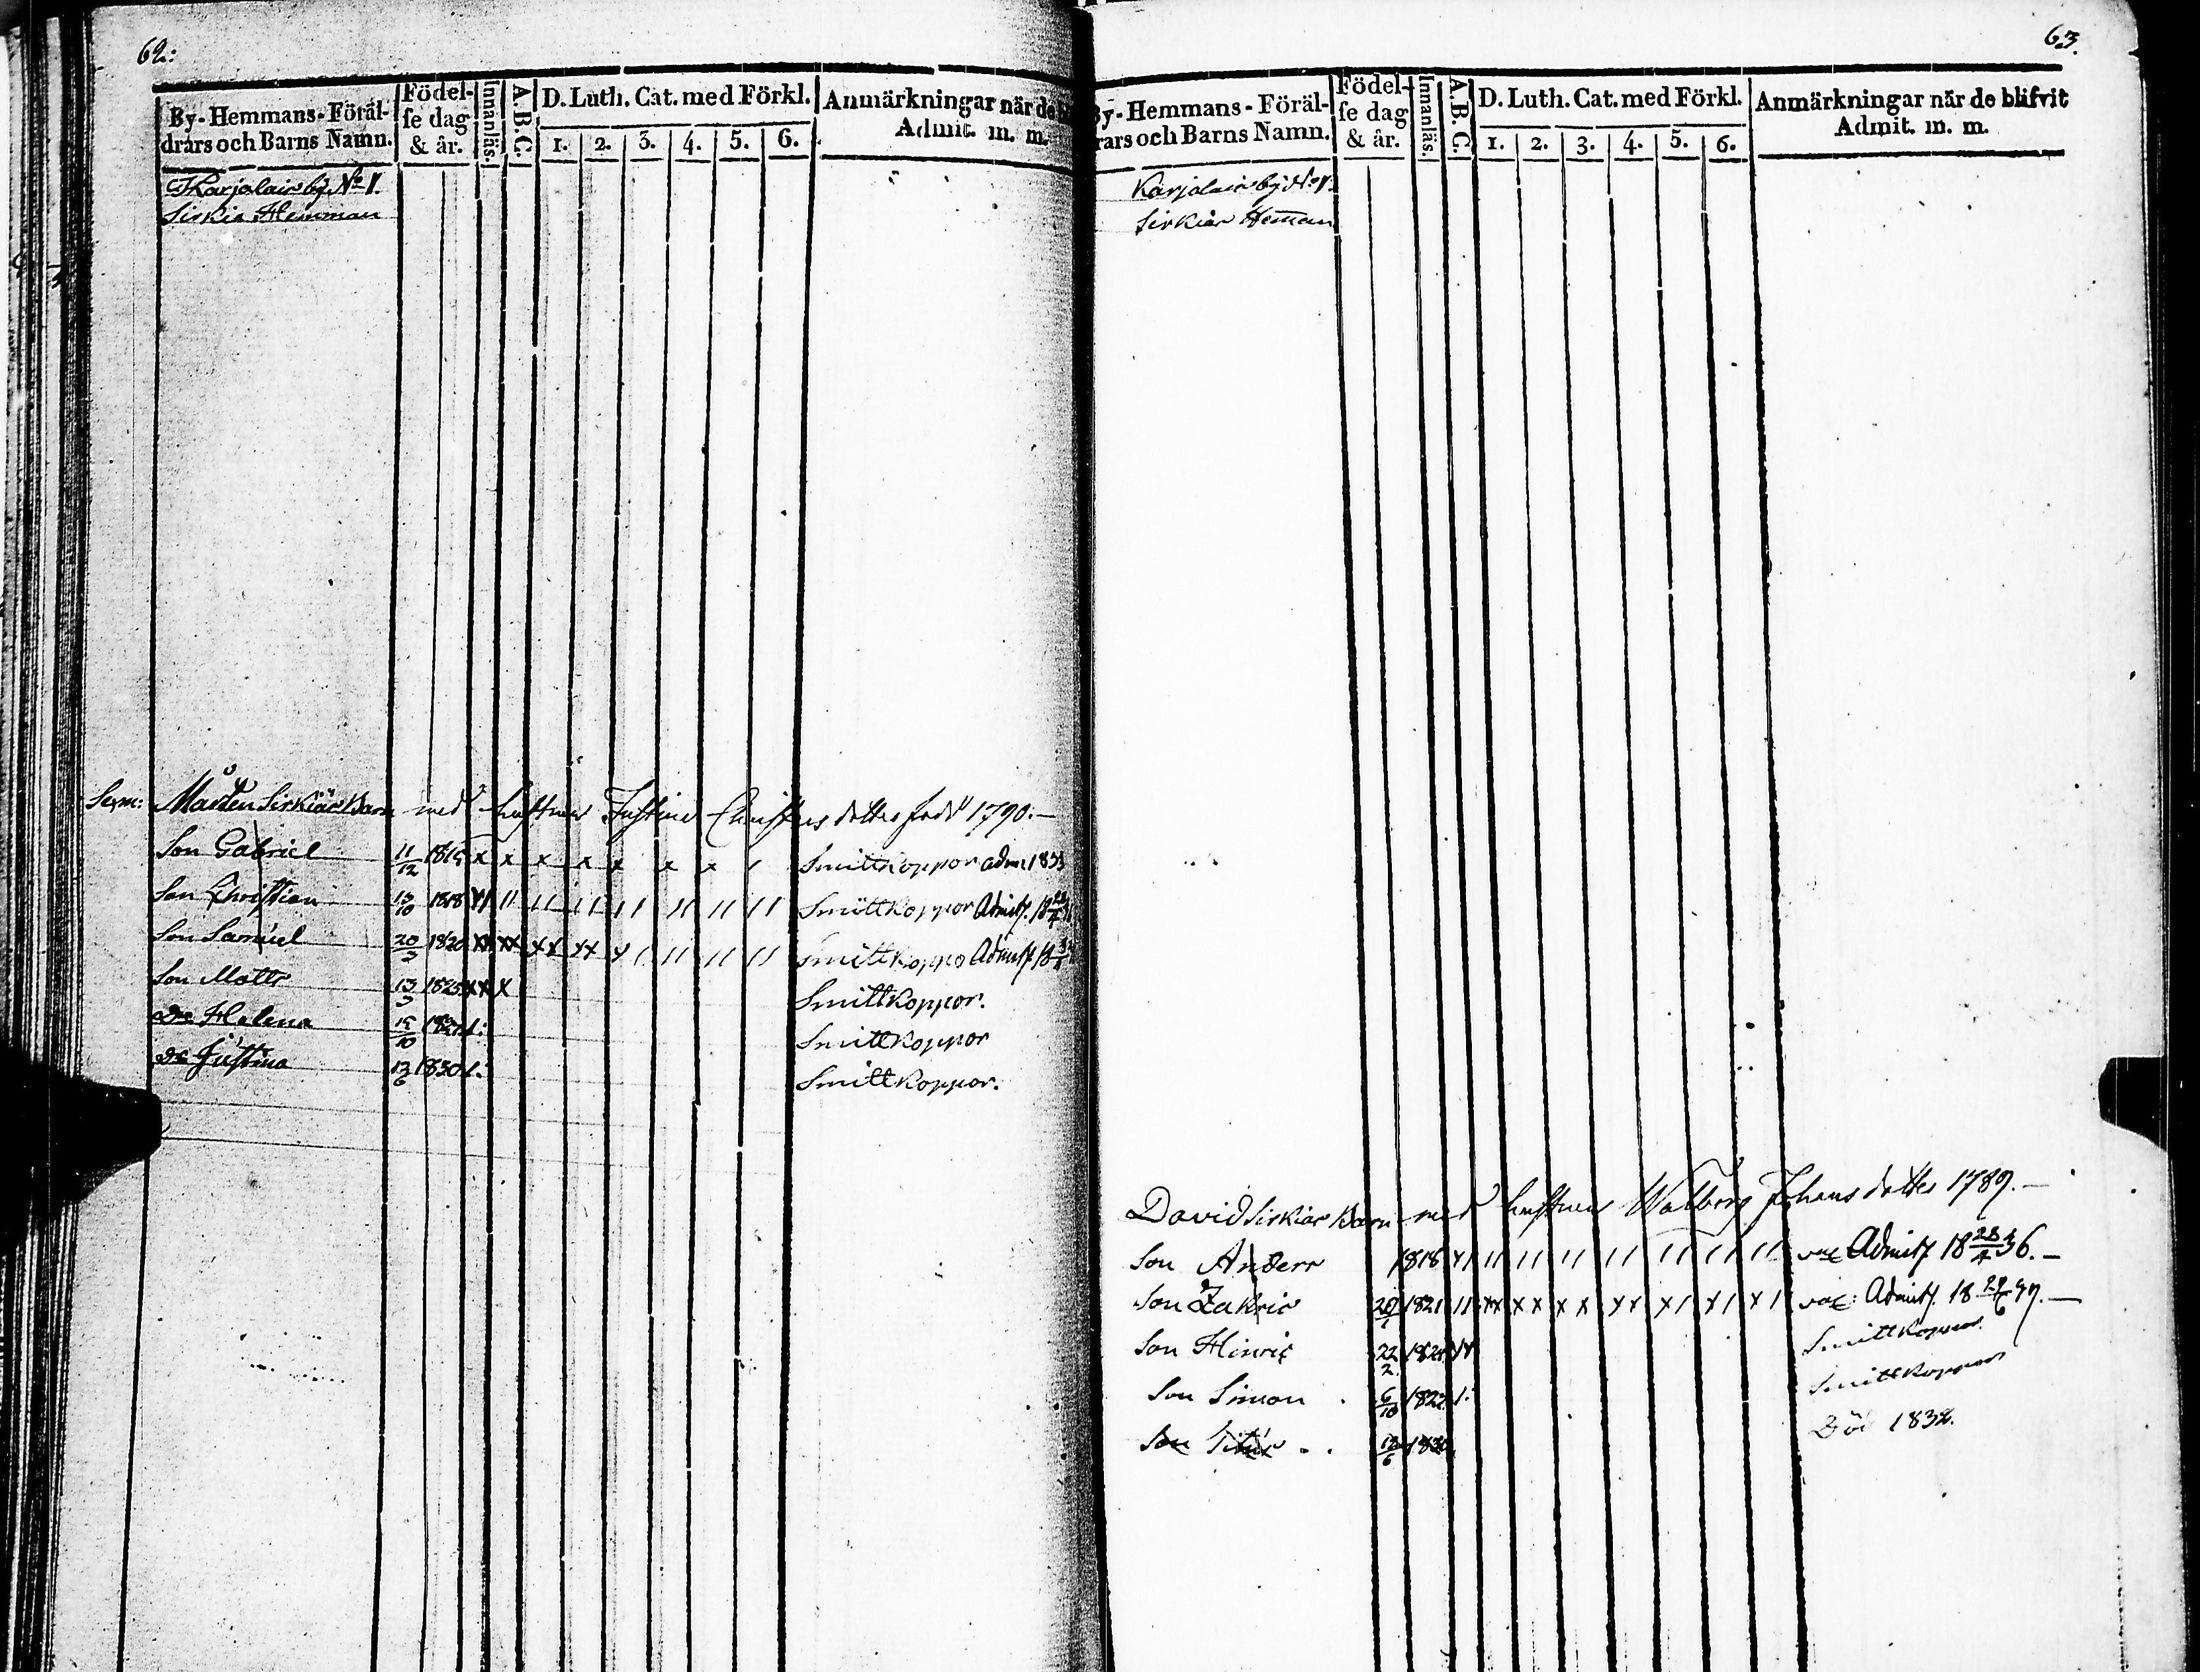 62:
By-Hemmans-Föräl-
drars och Barns Namn.
Födel-
se dag
& år.
Innanläs.
A.B.C.
D. Luth. Cat. med Förkl.
1. 2. 3. 4. 5. 6.
Anmärkningar när de
Admit. m. m.
Karjalais by No 1.
Sirkia Hemman
Mårten Sirkiäs Barn med hustrun Justina Christers dotter född 1790.—
Son Gabriel 11/12 1815 x x x x x x x Smittkoppor adm: 1833
Son Christian 13/10 1818 x1 11 11 11 11 11 11 11 Smittkoppor Admitt. 18
Son Samuel 20/3 1820 xx xx xx xx x1 11 11 11 Smittkoppo Admitt 18
Son Matts 13/3 1825 xx x Smittkoppor.
Dr Helena 15/10 1827 1: Smittkoppor
Dr Justina 13/6 1830 1: Smittkoppor.
63.
By-Hemmans-Föräl-
rars och Barns Namn.
Födel-
se dag
& år.
Innanläs.
A.B.C.
D. Luth. Cat. med Förkl.
1. 2. 3. 4. 5. 6.
Anmärkningar när de blifvit
Admit. m. m.
Karjalais by No 1.
Sirkias Heman
David Sirkias Barn med hustrun Walborg Johans dotter 1789.—
Son Anders 1818 x1 11 11 11 11 11 11 11 vac Admitt 18 28/4 36.—
Son Zakris 20/1 1821 11 xx xx xx xx x1 x1 x1 vac: Admitt. 18
Son Hinric 22/2 xx Smittkoppor.
Son Simon 6/10 1827 1: Smittkoppor
Son 12/6 Död 1832.